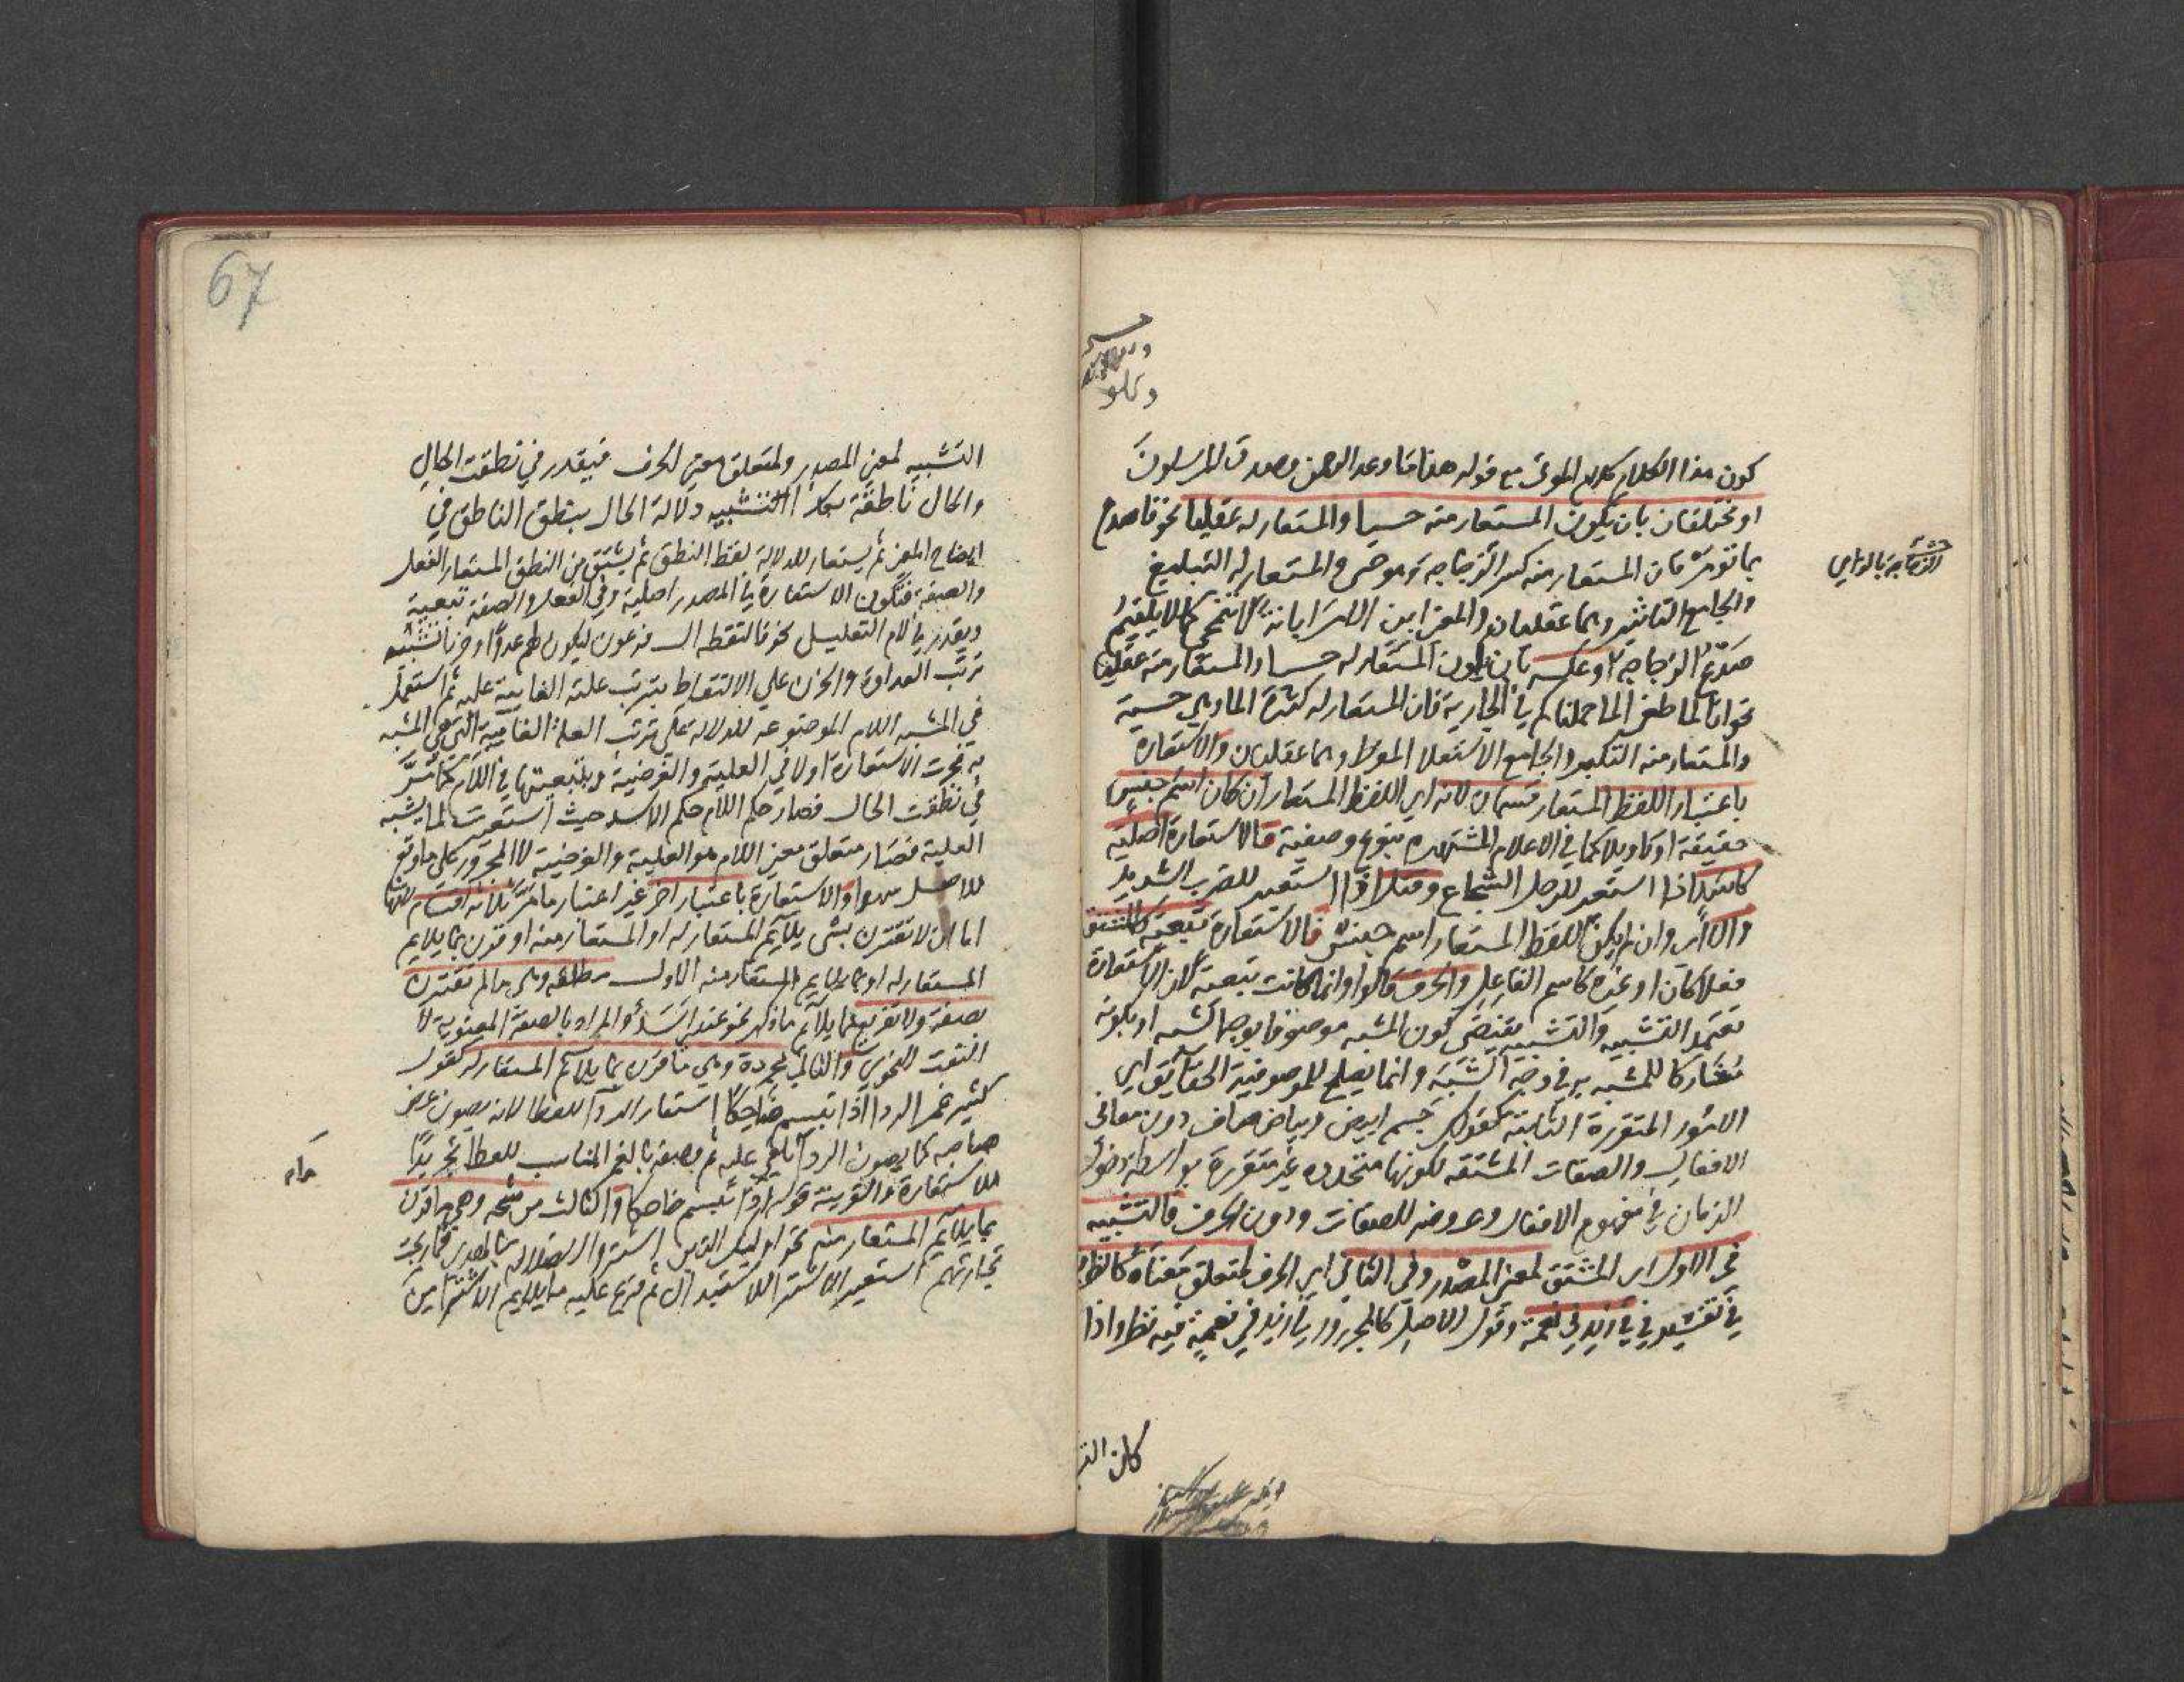 كون هذا الكلام كلام الموتى مع قوله هذا ما وعد الرحمن وصدق المرسلون
او مختلفان بان يكون المستعار منه حسيا والمستعار له عقليا نحو فاصدع
بما تؤمر فان المستعار منه كسر الزجاجة وهو حسي والمستعار له التبليغ
والجامع التاثير وهما عقليان والمعنى ابن الامر ابانة لا تنمحي كما لا يلتئم
صدع الزجاجة او عكسه بان يكون المستعار له حسيا والمستعار منه عقليا
نحو انا لما طغى الماء حملناكم في الجارية فان المستعار له كثرة الماء وهي حسية
والمستعار منه التكبر والجامع الاستعلاء المفرط وهما عقليان والاستعارة
باعتبار اللفظ المستعار قسمان لانه اي اللفظ المستعار ان كان اسم جنس
حقيقة او تاويلا كما في الاعلام المشتهرة بنوع وصفية فالاستعارة اصلية
كاسد اذا استعير للرجل الشجاع وقتل اذا استعير للضرب الشديد
والا اي وان لم يكن اللفظ المستعار اسم جنس فالاستعارة تبعية كالمشتق
فعلا كان او غيره كاسم الفاعل والحرف قالوا وانما كانت تبعية لان الاستعارة
تعتمد التشبيه والتشبيه يقتضي كون المشبه موصوفا بوجه الشبه او بكونه
مشاركا للمشبه به في وجه الشبه وانما يصلح للموصوفية الحقائق اي
الامور المتقررة الثابتة كقولك جسم ابيض وبياض صاف دون معاني
الافعال والصفات المشتقة لكونها متجددة غير متقررة بواسطة دخول
الزمان في مفهوم الافعال وعروضه للصفات ودون الحرف فالتشبيه
في الاول اي المشتق لمعنى المصدر وفي الثاني اي الحرف لمتعلق معناه كالظرفية
في تفسير في في زيد في نعمة وقول الاصل كالمجرور في زيد في نعمة فيه نظر واذا
كان التشبيه
الزجاجة بالزاي
التشبيه لمعنى المصدر ولمتعلق معنى الحرف فيقدر في نطقت الحال
والحال ناطقة بكذا التشبيه دلالة الحال بنطق الناطق في
ايضاح المعنى ثم يستعار للدلالة لفظ النطق ثم يشتق من النطق المستعار الفعل
والصفة فتكون الاستعارة في المصدر اصلية وفي الفعل والصفة تبعية
ويقدر في لام التعليل نحو فالتقطه ال فرعون ليكون لهم عدوا وحزنا تشبيه
ترتب العداوة والحزن على الالتقاط بترتب علته الغائية عليه ثم استعمل
في المشبه اللام الموضوعة للدلالة على ترتب العلة الغائية التي هي المشبه
به فجرت الاستعارة اولا في العلية والغرضية وبتبعيتها في اللام كما مر
في نطقت الحال فصار حكم اللام حكم الاسد حيث استعيرت لما يشبه
العلية فصار متعلق معنى اللام هو العلية والغرضية لا المجرور على ما وقع
للاصل سهوا والاستعارة باعتبار اخر غير اعتبار ما مر ثلاثة اقسام لانها
اما ان لا تقترن بشي يلايم المستعار له او المستعار منه او تقرن بما يلايم
المستعار له او بما يلايم المستعار منه الاول مطلقة وهي ما لم تقترن
بصفة ولا تفريع بما يلايم ما ذكر نحو عندي اسد والمراد بالصفة المعنوية لا
النعت النحوي والثاني مجردة وهي ما قرن بما يلايم المستعار له كقوله
كثير غمر الردا اذا تبسم ضاحكا استعار الردا للعطا لانه يصون عرض
صاحبه كما يصون الردا ما يلقى عليه ثم وصفه بالغمر المناسب للعطا تجريدا
للاستعارة والقرينة قوله اذا تبسم ضاحكا والثالث مرشحة وهي ما قرن
بما يلايم المستعار منه نحو اوليك الذين اشتروا الضلالة بالهدى فما ربحت
تجارتهم استعير الاشترا للاستبدال ثم فرع عليه ما يلايم الاشترا من
67